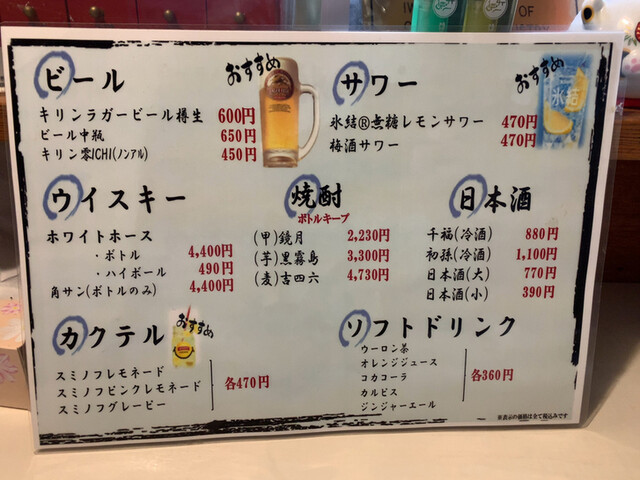 ビール
おすすめ
キリンラガービール樽生 600円
ビール中瓶 650円
キリン零ICHI(ノンアル) 450円
サワー
おすすめ
氷結
氷結®無糖レモンサワー 470円
梅酒サワー 470円
ウイスキー
ホワイトホース
・ボトル 4,400円
・ハイボール 490円
角サン(ボトルのみ) 4,400円
焼酎
ボトルキープ
(甲)鏡月 2,230円
(芋)黒霧島 3,300円
(麦)吉四六 4,730円
日本酒
千福(冷酒) 880円
初孫(冷酒) 1,100円
日本酒(大) 770円
日本酒(小) 390円
カクテル
おすすめ
スミノフレモネード
スミノフピンクレモネード
スミノフグレービー
各470円
ソフトドリンク
ウーロン茶
オレンジジュース
コカコーラ
カルピス
ジンジャーエール
各360円
※表示の価格は全て税込みです